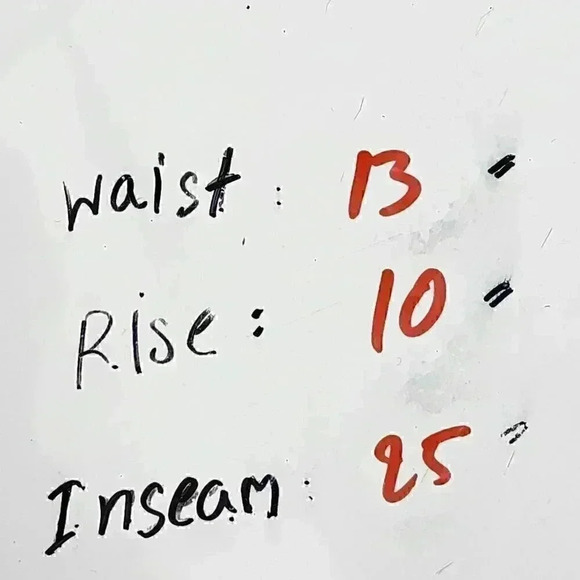 Waist : 13 "
Rise : 10 "
Inseam : 25 "